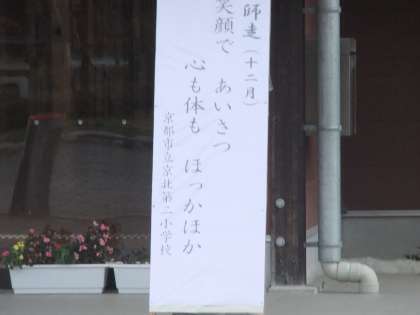 師走(十二月)
笑顔で あいさつ
心も体も ほっかほか
京都市立京北第二小学校